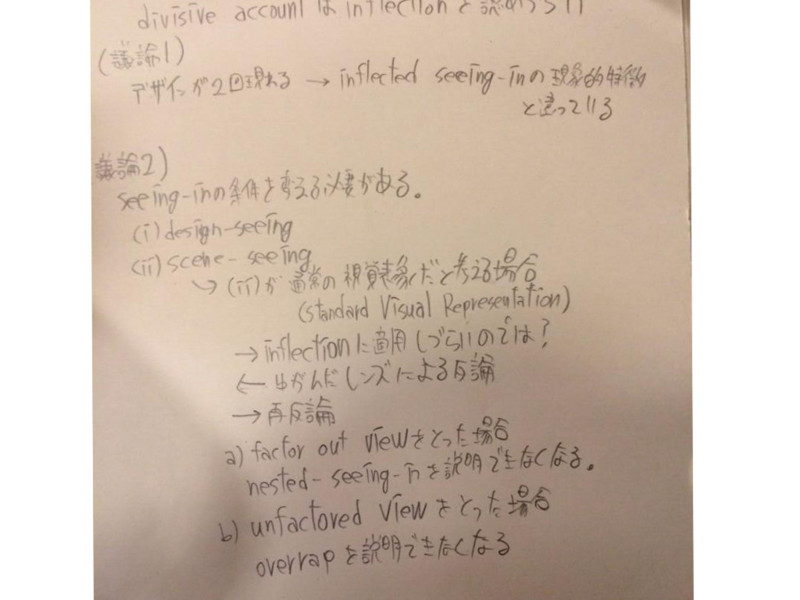 divisive account は inflection を説明
(議論1)
デザインが2回現れる → inflected seeing-inの現象的特徴
と違っている
議論2)
seeing-inの条件を変える必要がある。
(i) design-seeing
(ii) scene-seeing
↳ (ii)が通常の視覚表象だと考える場合
(standard Visual Representation)
→ inflectionに適用しづらいのでは?
← ゆがんだレンズによる反論
→ 再反論
a) factor out viewをとった場合
nested-seeing-inを説明できなくなる。
b) unfactored viewをとった場合
overrapを説明できなくなる